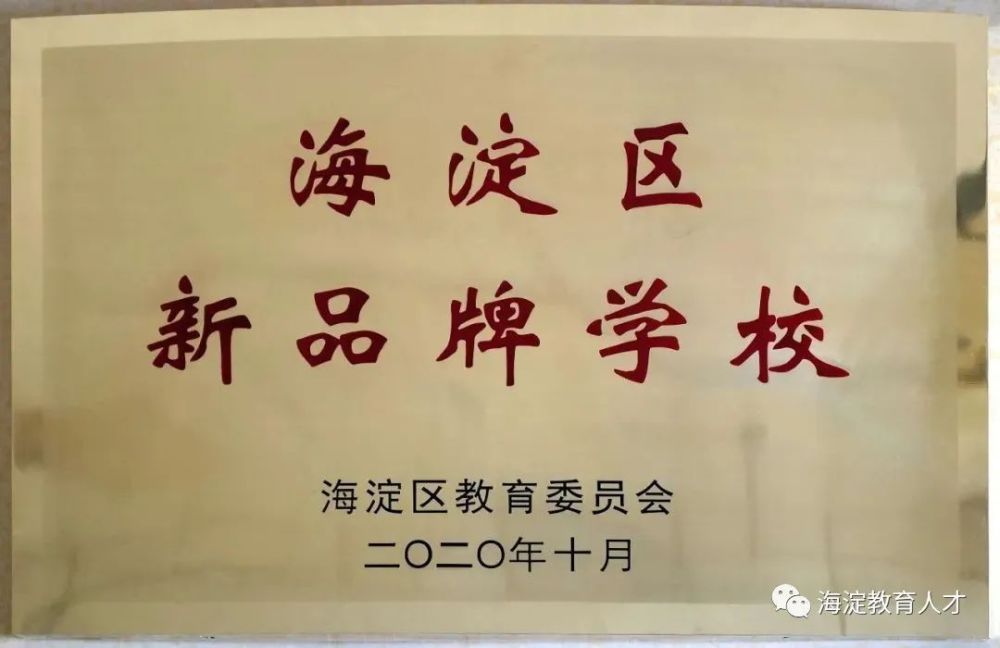 海淀区
新品牌学校
海淀区教育委员会
二〇二〇年十月
海淀教育人才